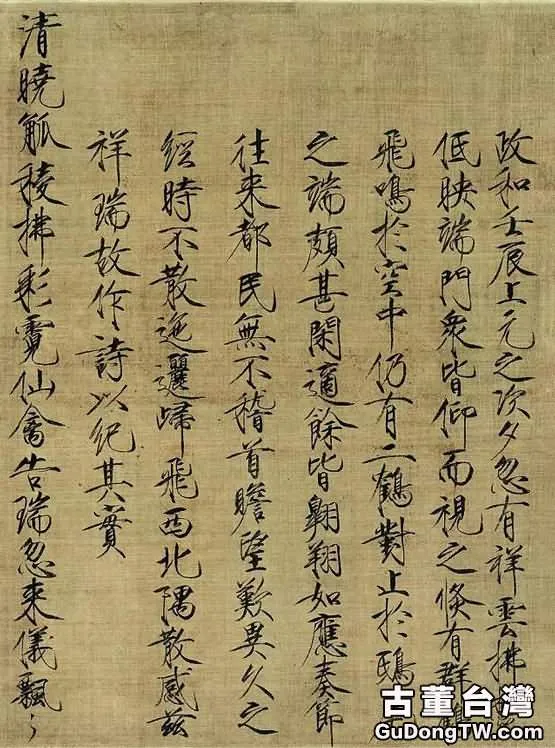 政和壬辰上元之次夕忽有祥雲拂
低映端門衆皆仰而視之倏有群鶴
飛鳴於空中仍有二鶴對止於鴟
之端頗甚閑適餘皆翱翔如應奏節
往来都民無不稽首瞻望歎異久之
經時不散迤邐歸飛西北隅散感兹
祥瑞故作詩以紀其實
清曉觚稜拂彩霓仙禽告瑞忽来儀飄々
古董台灣
GuDongTW.com